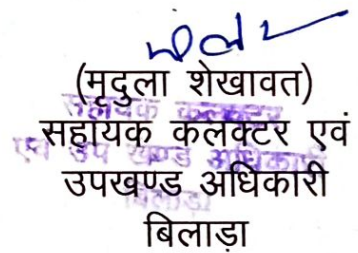 (मृदुला शेखावत)
सहायक कलक्टर एवं
उपखण्ड अधिकारी
बिलाड़ा
सहायक कलक्टर
एवं उप खण्ड अधिकारी
बिलाडा